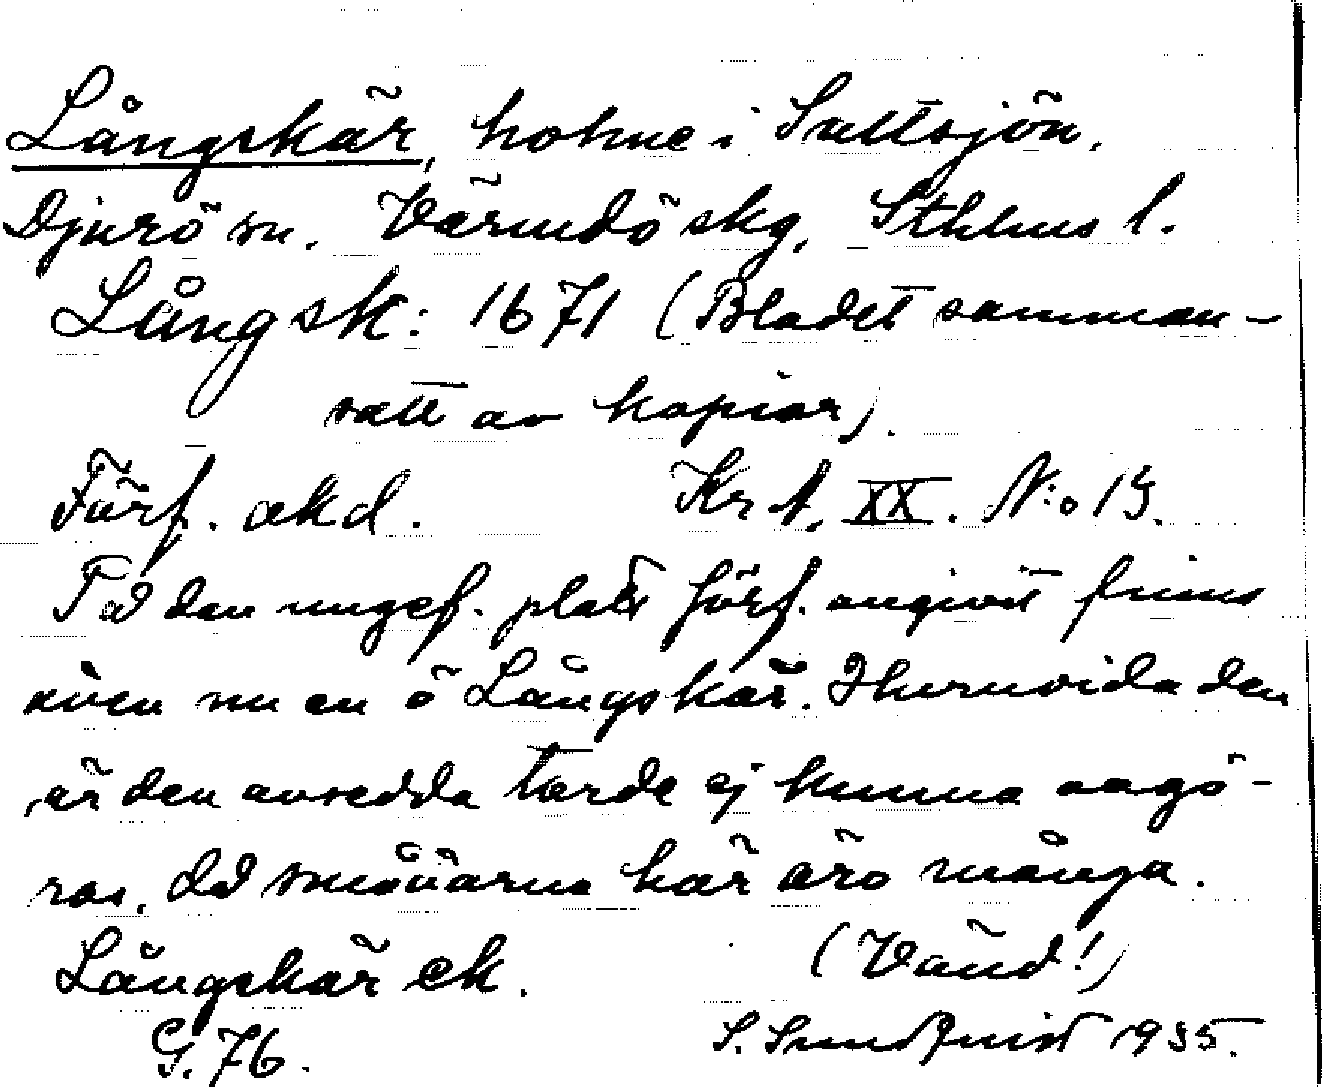 Långskär, holme i Saltsjön.
Djurö sn. Värmdö skg. Sthlms l.
Långsk: 1671 (Bladet samman-
satt av kopior).
Förf. okd. Krt. XX. N:o 15.
På den ungef. plats förf. angivit finns
även nu en ö Långskär. Huruvida den
är den avsedda torde ej kunna avgö-
ras, då småöarna här äro många.
Långskär ek. (Vänd!)
G. 76. S. Sundquist 1935.